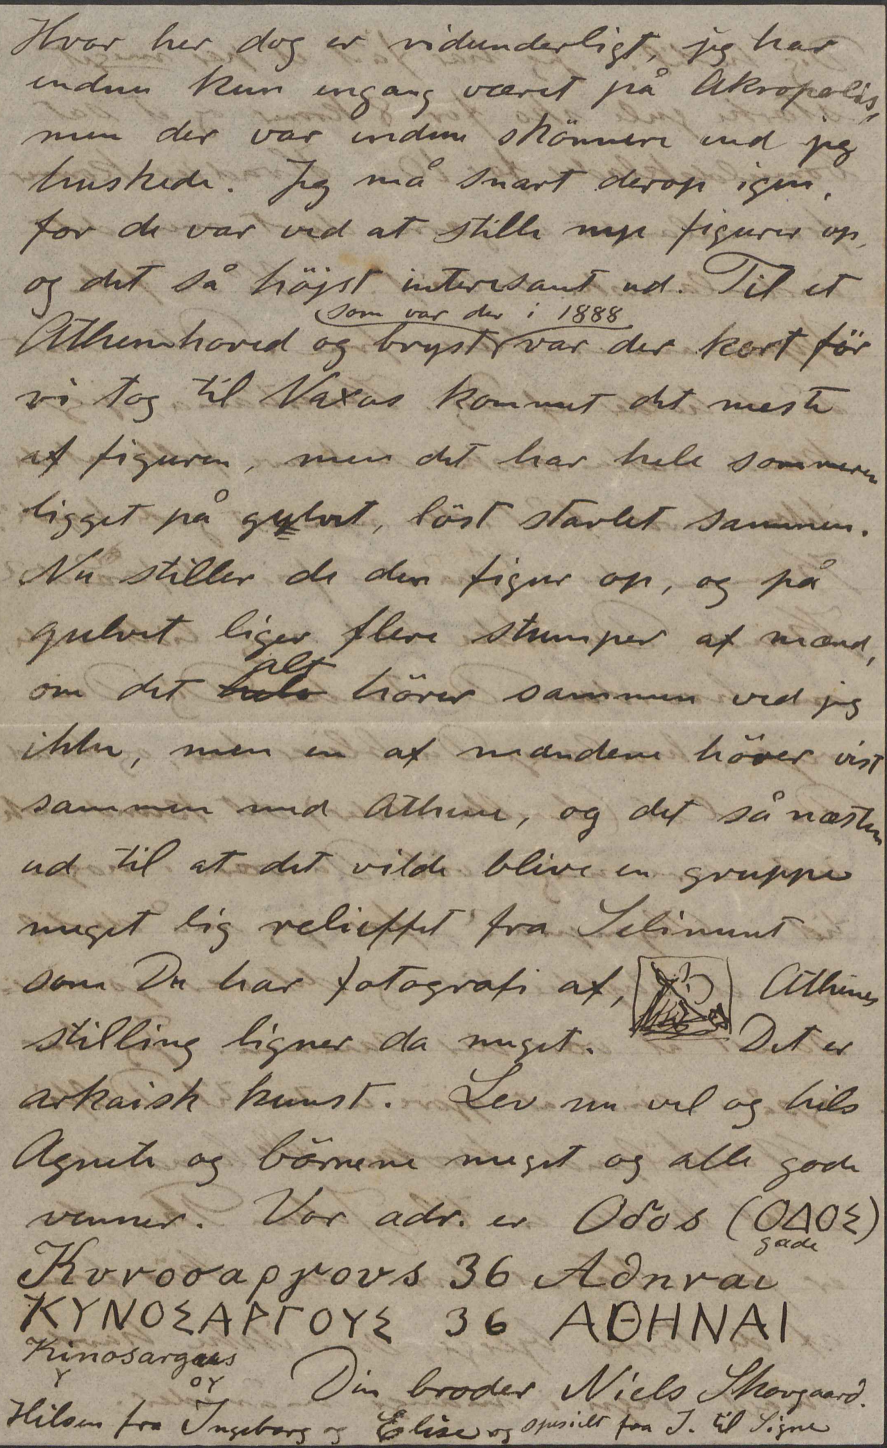 Hvor her dog er vidunderligt, jeg har
endnu kun engang været på Akropolis,
men der var endnu skönnere end jeg
huskede. Jeg må snart derop igen,
for de var ved at stille nye figurer op,
og det så höjst interesant ud. Til et
som var der i 1888
Athenehoved og bryst var der kort för
vi tog til Naxos kommet det meste
af figuren, men det har hele sommeren
ligget på gulvet, löst stavlet sammen.
Nu stiller de den figur op, og på
gulvet liger flere stumper af mænd,
alt
om det hele hörer sammen ved jeg
ikke, men en af mændene hörer vist
sammen med Athene, og det så næsten
ud til at det vilde blive en gruppe
meget lig relieffet fra Selinunt
som Du har fotografi af, Athenes
stilling ligner da meget. Det er
arkaisk kunst. Lev nu vel og hils
Agnete og börnene meget og alle gode
venner. Vor adr. er Οδος (ΟΔΟΣ)
gade
Κυνοσαργους 36 Αθηναι
ΚΥΝΟΣΑΡΓΟΥΣ 36 ΑΘΗΝΑΙ
Kinosargus
Υ ΟΥ
Din broder Niels Skovgaard.
Hilsen fra Ingeborg og Elise og spesielt fra I. til Signe